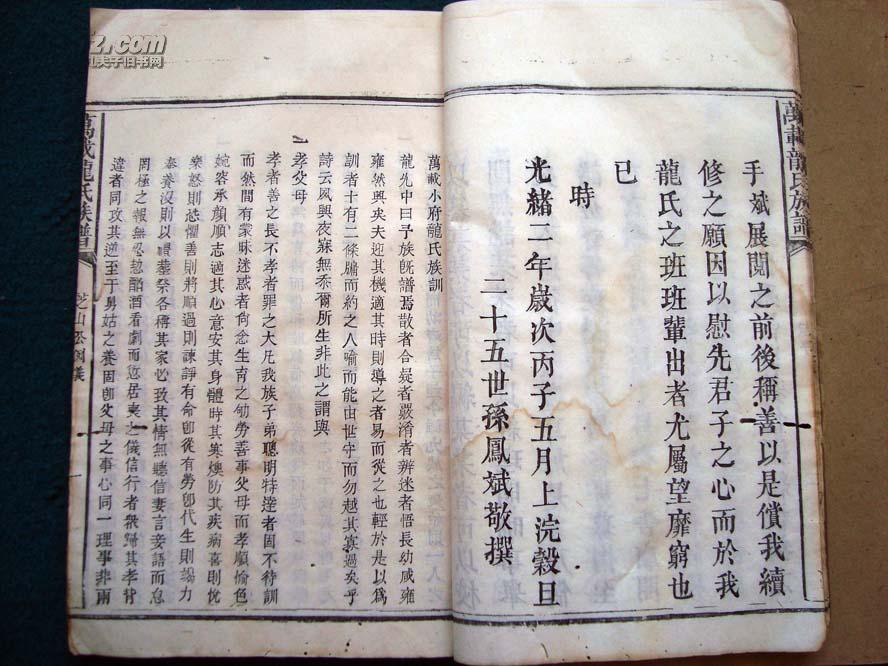 萬載龍氏族譜
手斌展閱之前後稱善以是償我續
修之願因以慰先君子之心而於我
龍氏之班班輩出者尤屬望靡窮也
已
時
光緒二年歲次丙子五月上浣穀旦
二十五世孫鳳斌敬撰
萬載小府龍氏族訓
龍先中曰予族旣譜焉散者合疑者覈淆者辨迷者悟長幼咸雍
雍然興矣夫迎其機適其時則導之者易而從之也輕於是以爲
訓者十有二條牗而約之人喻而能由世守而勿越其寡過矣乎
詩云夙興夜寐無忝爾所生非此之謂與
一孝父母
孝者善之長不孝者罪之大凡我族子弟聰明特達者固不待訓
而然間有蒙昧迷惑者尙念生育之劬勞善事父母而孝順愉色
婉容承顏順志適其心意安其身體時其寒燠防其疾病喜則悅
樂怒則恐懼善則將順過則諫諍有命卽從有勞卽代生則竭力
奉養沒則以禮葬祭各稱其家必致其情無聽信妻言妾語而怠
罔極之報無忍酗酒看劇而忘居喪之儀信行者衆歸其孝背
違者同攻其逆至于舅姑之養固卽父母之事心同一理事非兩
萬載龍氏族譜
芝山